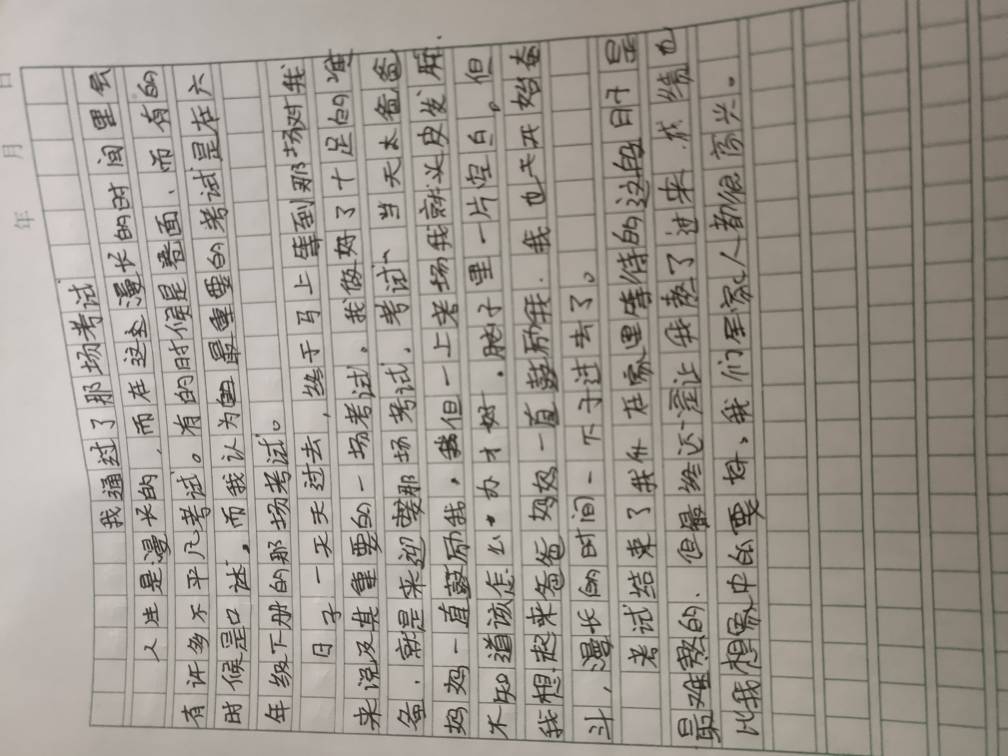 年 月 日
我通过了那场考试
人生是漫长的，而在这处漫长的时间里会
有许多不平凡考试。有的时候是卷面、而有的
时候是口述。而我认为最重要的考试是在六
年级下册的那场考试。
日子一天天过去，终于马上等到那场对我
来说及其重要的一场考试。我做好了十足的准
备，就是来迎要那场考试，考试、当天太爸爸
妈妈一直鼓励我。我但一上考场我就头皮发麻.
不知道该怎么办才好，脑子里一片空白。但
我想起来爸爸妈妈一直鼓励我.我也开始奋
斗，漫长的时间一下子过去了。
考试结束了我在家里等待的这段日子是
最难熬的、但最终还让我熬了过来.成绩也
比我想象中的要好，我们全家人都很高兴。